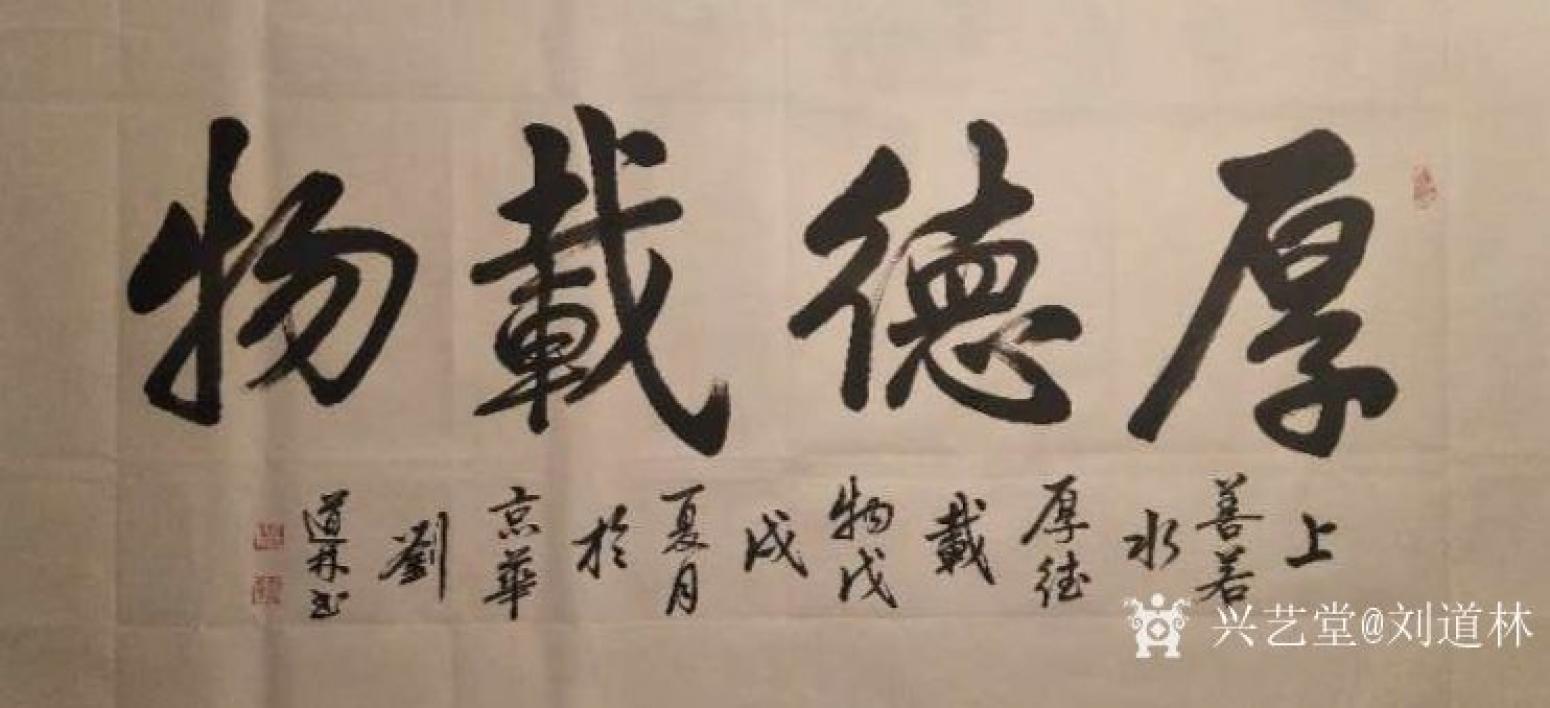 厚德載物
上善若水厚德載物戊戌夏月於京華劉道林书
兴艺堂@刘道林